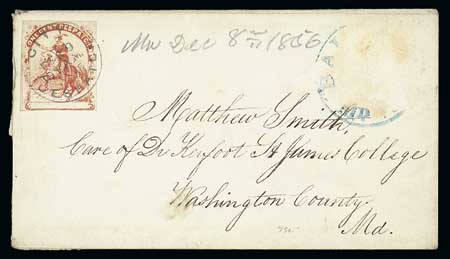 ONE CENT DESPATCH
Dec 8th 1856
BA
Matthew Smith,
Care of Dr Kerfoot St James College
Washington County.
Md.